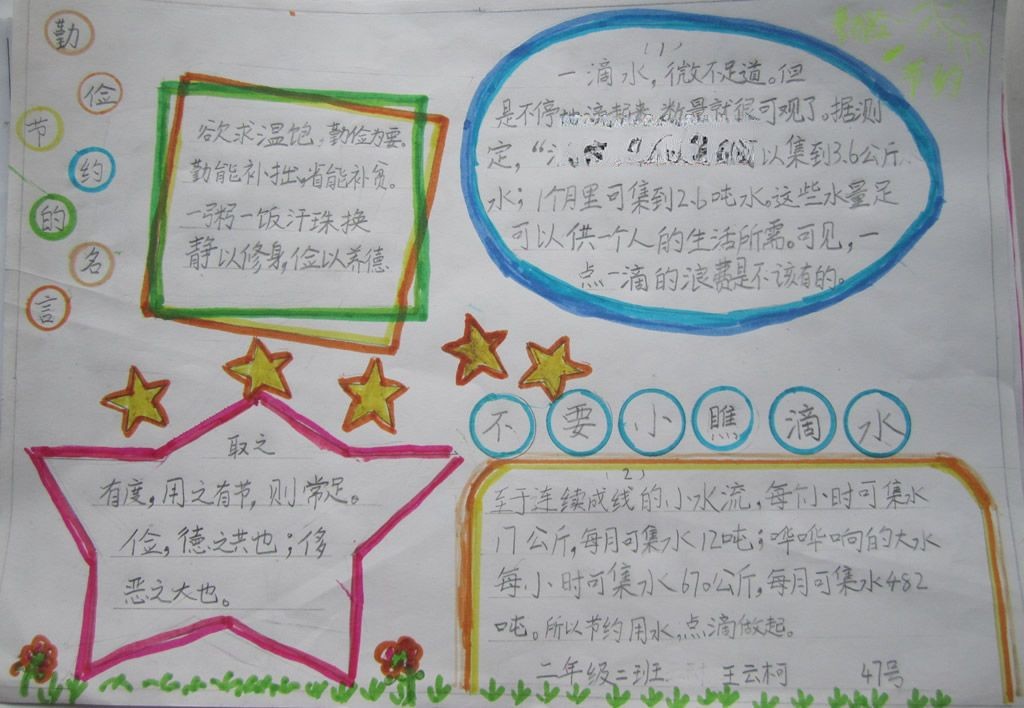 勤
俭
节
约
的
名
言
欲求温饱，勤俭为要。
勤能补拙，省能补贫。
一粥一饭汗珠换
静以修身，俭以养德
(1)
一滴水，微不足道。但
是不停地滴起来，数量就很可观了。据测
定，“ 可以集到3.6公斤
水；1个月里可集到2.6吨水。这些水量足
可以供一个人的生活所需。可见，一
点一滴的浪费是不该有的。
取之
有度，用之有节，则常足。
俭，德之共也；侈
恶之大也。
不要小瞧滴水
(2)
至于连续成线的小水流，每个小时可集水
17公斤，每月可集水12吨；哗哗响的大水
每小时可集水670公斤，每月可集水482
吨。所以节约用水，点滴做起。
二年级二班 王云柯 47号